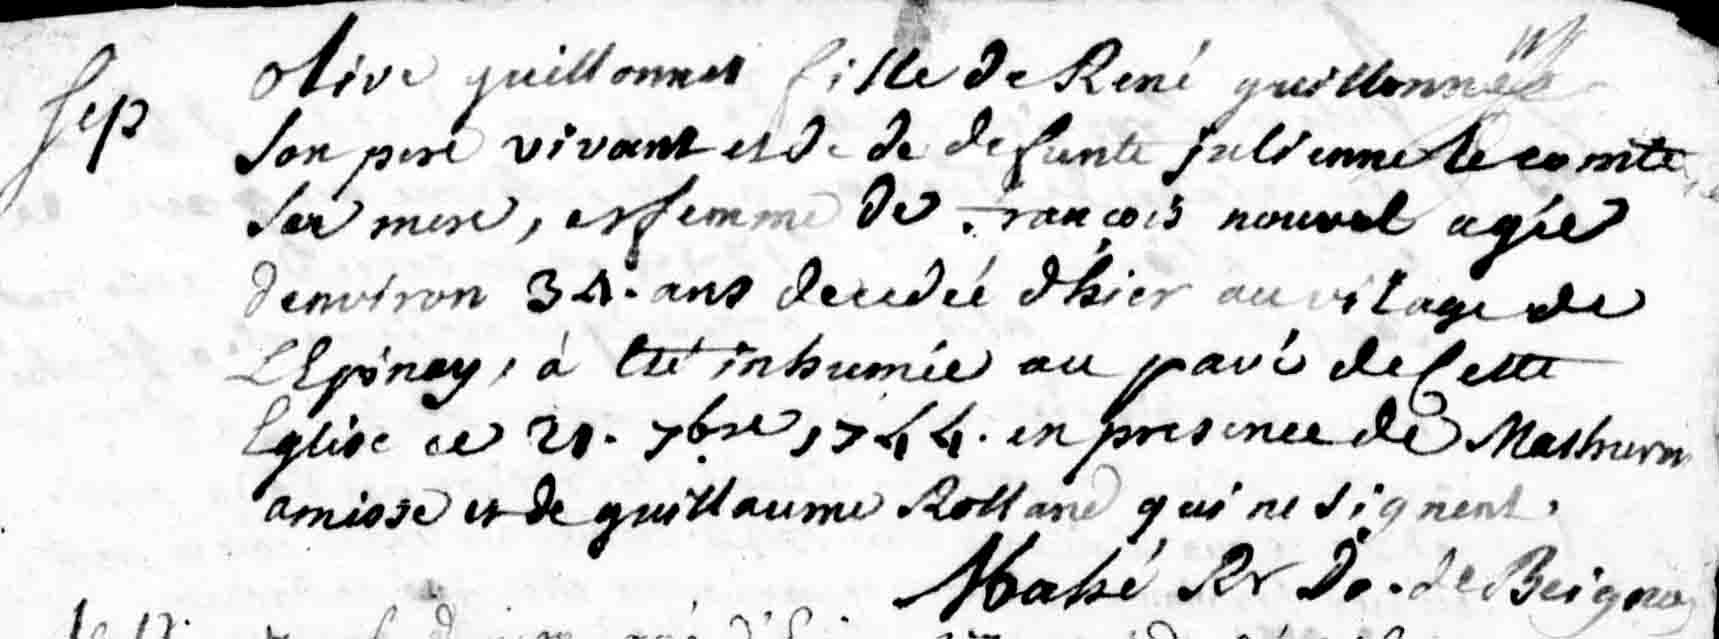 Sep
Olive guillonnet fille de René guillonnet
son pere vivant et de de defunte julienne le comte
sa mere, et femme de François nouvel agée
denviron 34. ans decedée d'hier au vilage de
L'Epinay, à été inhumée au pavé de Cette
Eglise ce 21. 7bre 1744. en presence de Mathurin
amisse et de guillaume Rolland qui ne signent.
Mahé Rr Do. de Beignon